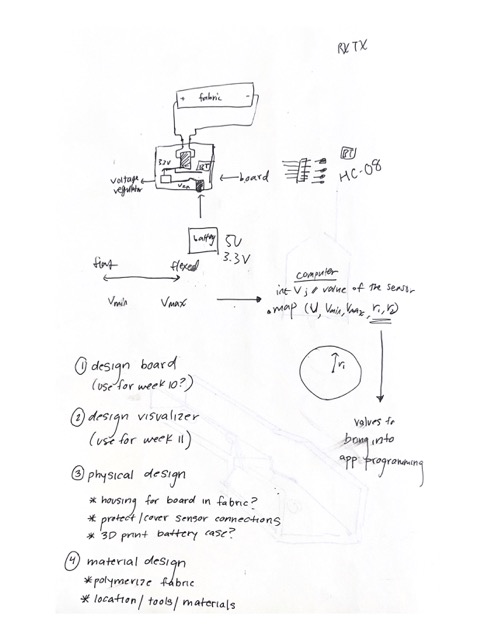 RX TX
+ fabric -
3.3V
BT
voltage regulator
board
Vcc
BT
HC-08
battery
5V
3.3V
flat
flexed
Vmin
Vmax
computer
int V ; // value of the sensor
map (V, Vmin, Vmax, r1, r2)
r1
values to
bring into
app programming
① design board
(use for week 10?)
② design visualizer
(use for week 11)
③ physical design
* housing for board in fabric?
* protect/cover sensor connections
* 3D print battery case?
④ material design
* polymerize fabric
* location/tools/materials